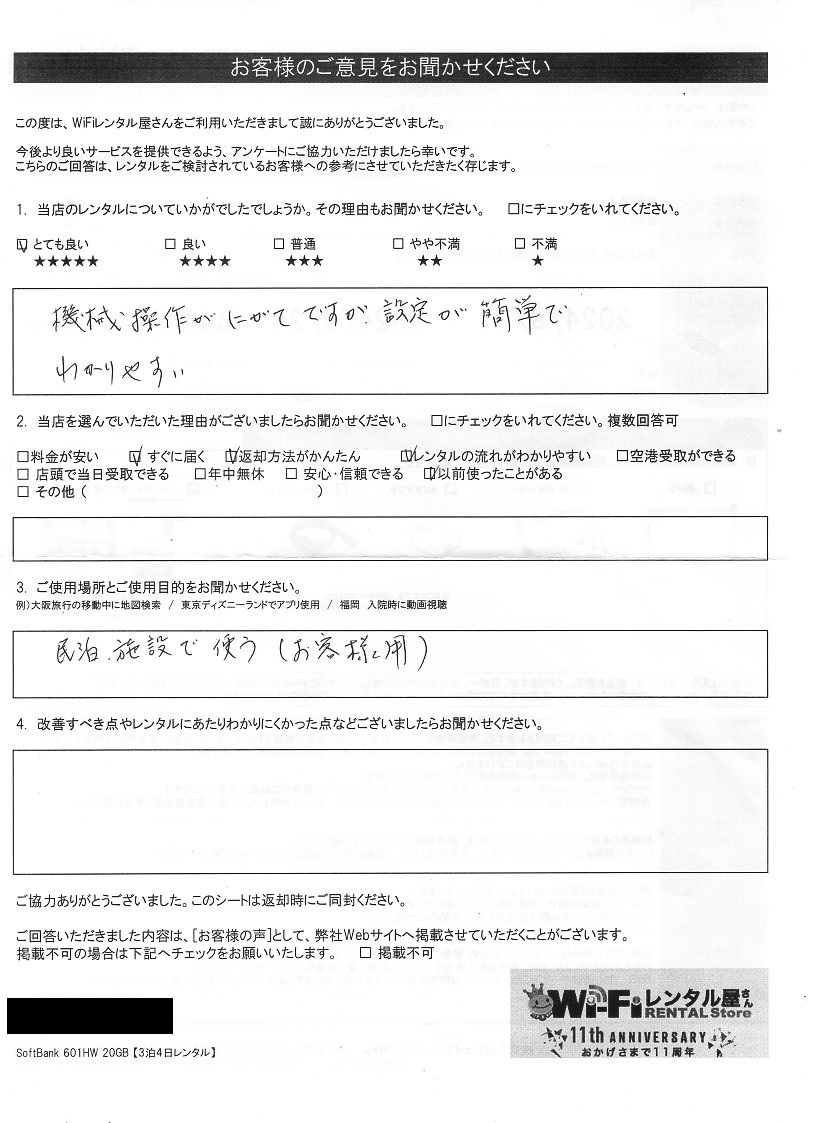 お客様のご意見をお聞かせください
この度は、WiFiレンタル屋さんをご利用いただきまして誠にありがとうございました。
今後より良いサービスを提供できるよう、アンケートにご協力いただけましたら幸いです。
こちらのご回答は、レンタルをご検討されているお客様への参考にさせていただきたく存じます。
1. 当店のレンタルについていかがでしたでしょうか。その理由もお聞かせください。 □にチェックをいれてください。
☑ とても良い □ 良い □ 普通 □ やや不満 □ 不満
★★★★★ ★★★★ ★★★ ★★ ★
機械操作がにがてですが設定が簡単で
わかりやすい
2. 当店を選んでいただいた理由がございましたらお聞かせください。 □にチェックをいれてください。複数回答可
□料金が安い ☑ すぐに届く ☑返却方法がかんたん ☑レンタルの流れがわかりやすい □空港受取ができる
□ 店頭で当日受取できる □年中無休 □ 安心・信頼できる ☑以前使ったことがある
□ その他 ( )
3. ご使用場所とご使用目的をお聞かせください。
例)大阪旅行の移動中に地図検索 / 東京ディズニーランドでアプリ使用 / 福岡 入院時に動画視聴
民泊施設で使う (お客様用)
4. 改善すべき点やレンタルにあたりわかりにくかった点などございましたらお聞かせください。
ご協力ありがとうございました。このシートは返却時にご同封ください。
ご回答いただきました内容は、[お客様の声]として、弊社Webサイトへ掲載させていただくことがございます。
掲載不可の場合は下記へチェックをお願いいたします。 □ 掲載不可
Wi-Fiレンタル屋さん
RENTAL Store
11th ANNIVERSARY
おかげさまで11周年
SoftBank 601HW 20GB【3泊4日レンタル】